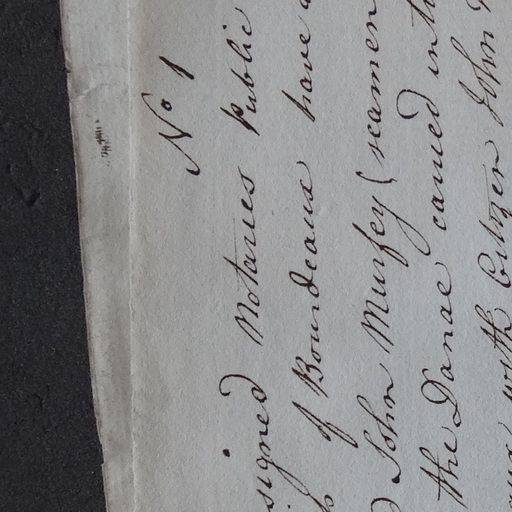 No 1
signed Notaries Public
of Bourdeaux have
John Murfey (seamen
the Danae carried in th
with Citizen John